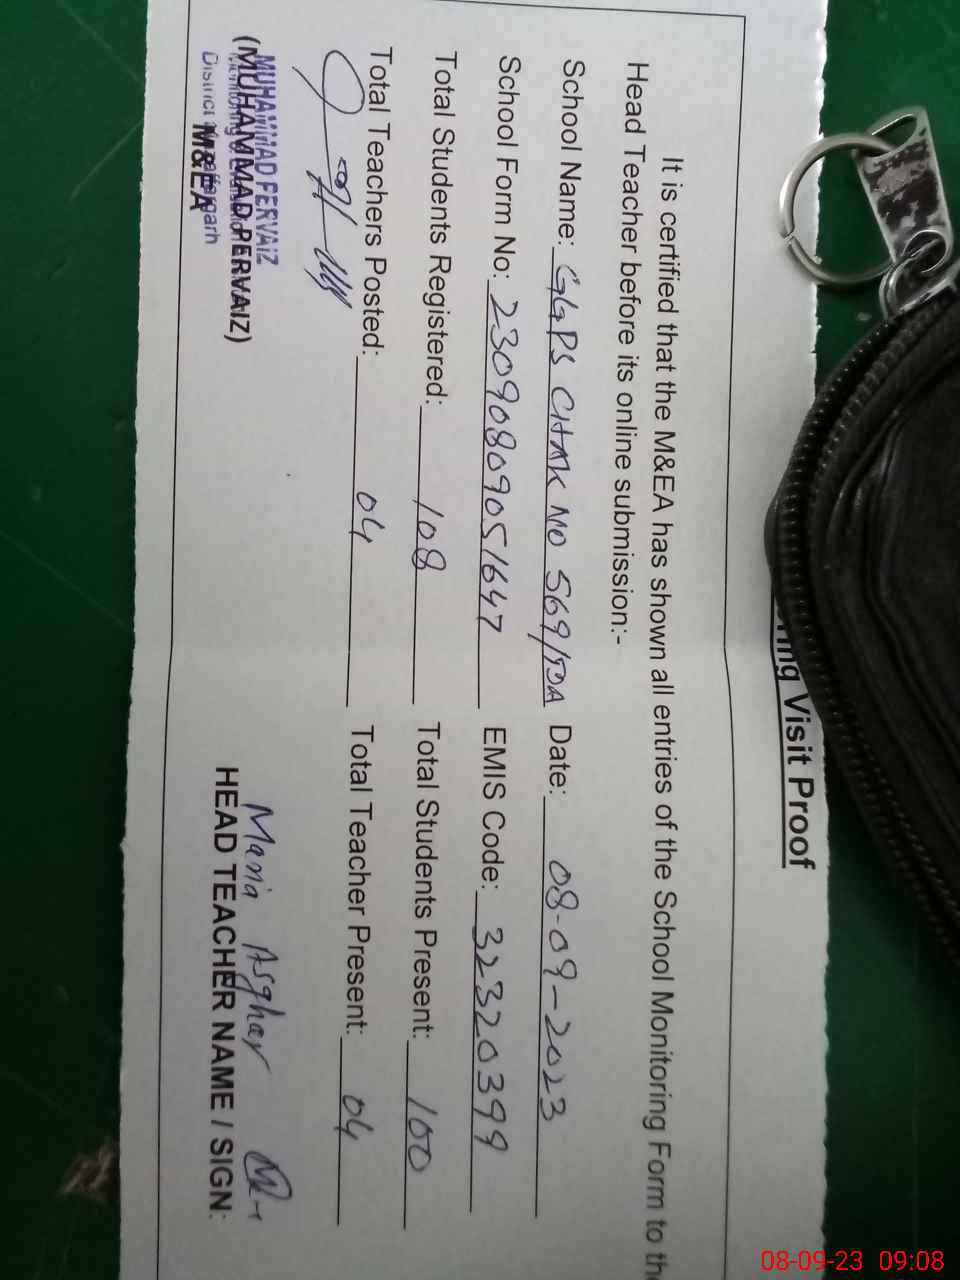 ring Visit Proof
It is certified that the M&EA has shown all entries of the School Monitoring Form to the
Head Teacher before its online submission:-
School Name: GGPS CHAK NO 569/TDA Date: 08-09-2023
School Form No: 23090809051647 EMIS Code: 32320399
Total Students Registered: 108 Total Students Present: 100
Total Teachers Posted: 04 Total Teacher Present: 04
Maria Asghar
MUHAMMAD PERVAIZ
(MUHAMMAD PERVAIZ) HEAD TEACHER NAME / SIGN:
M&EA
District
08-09-23 09:08